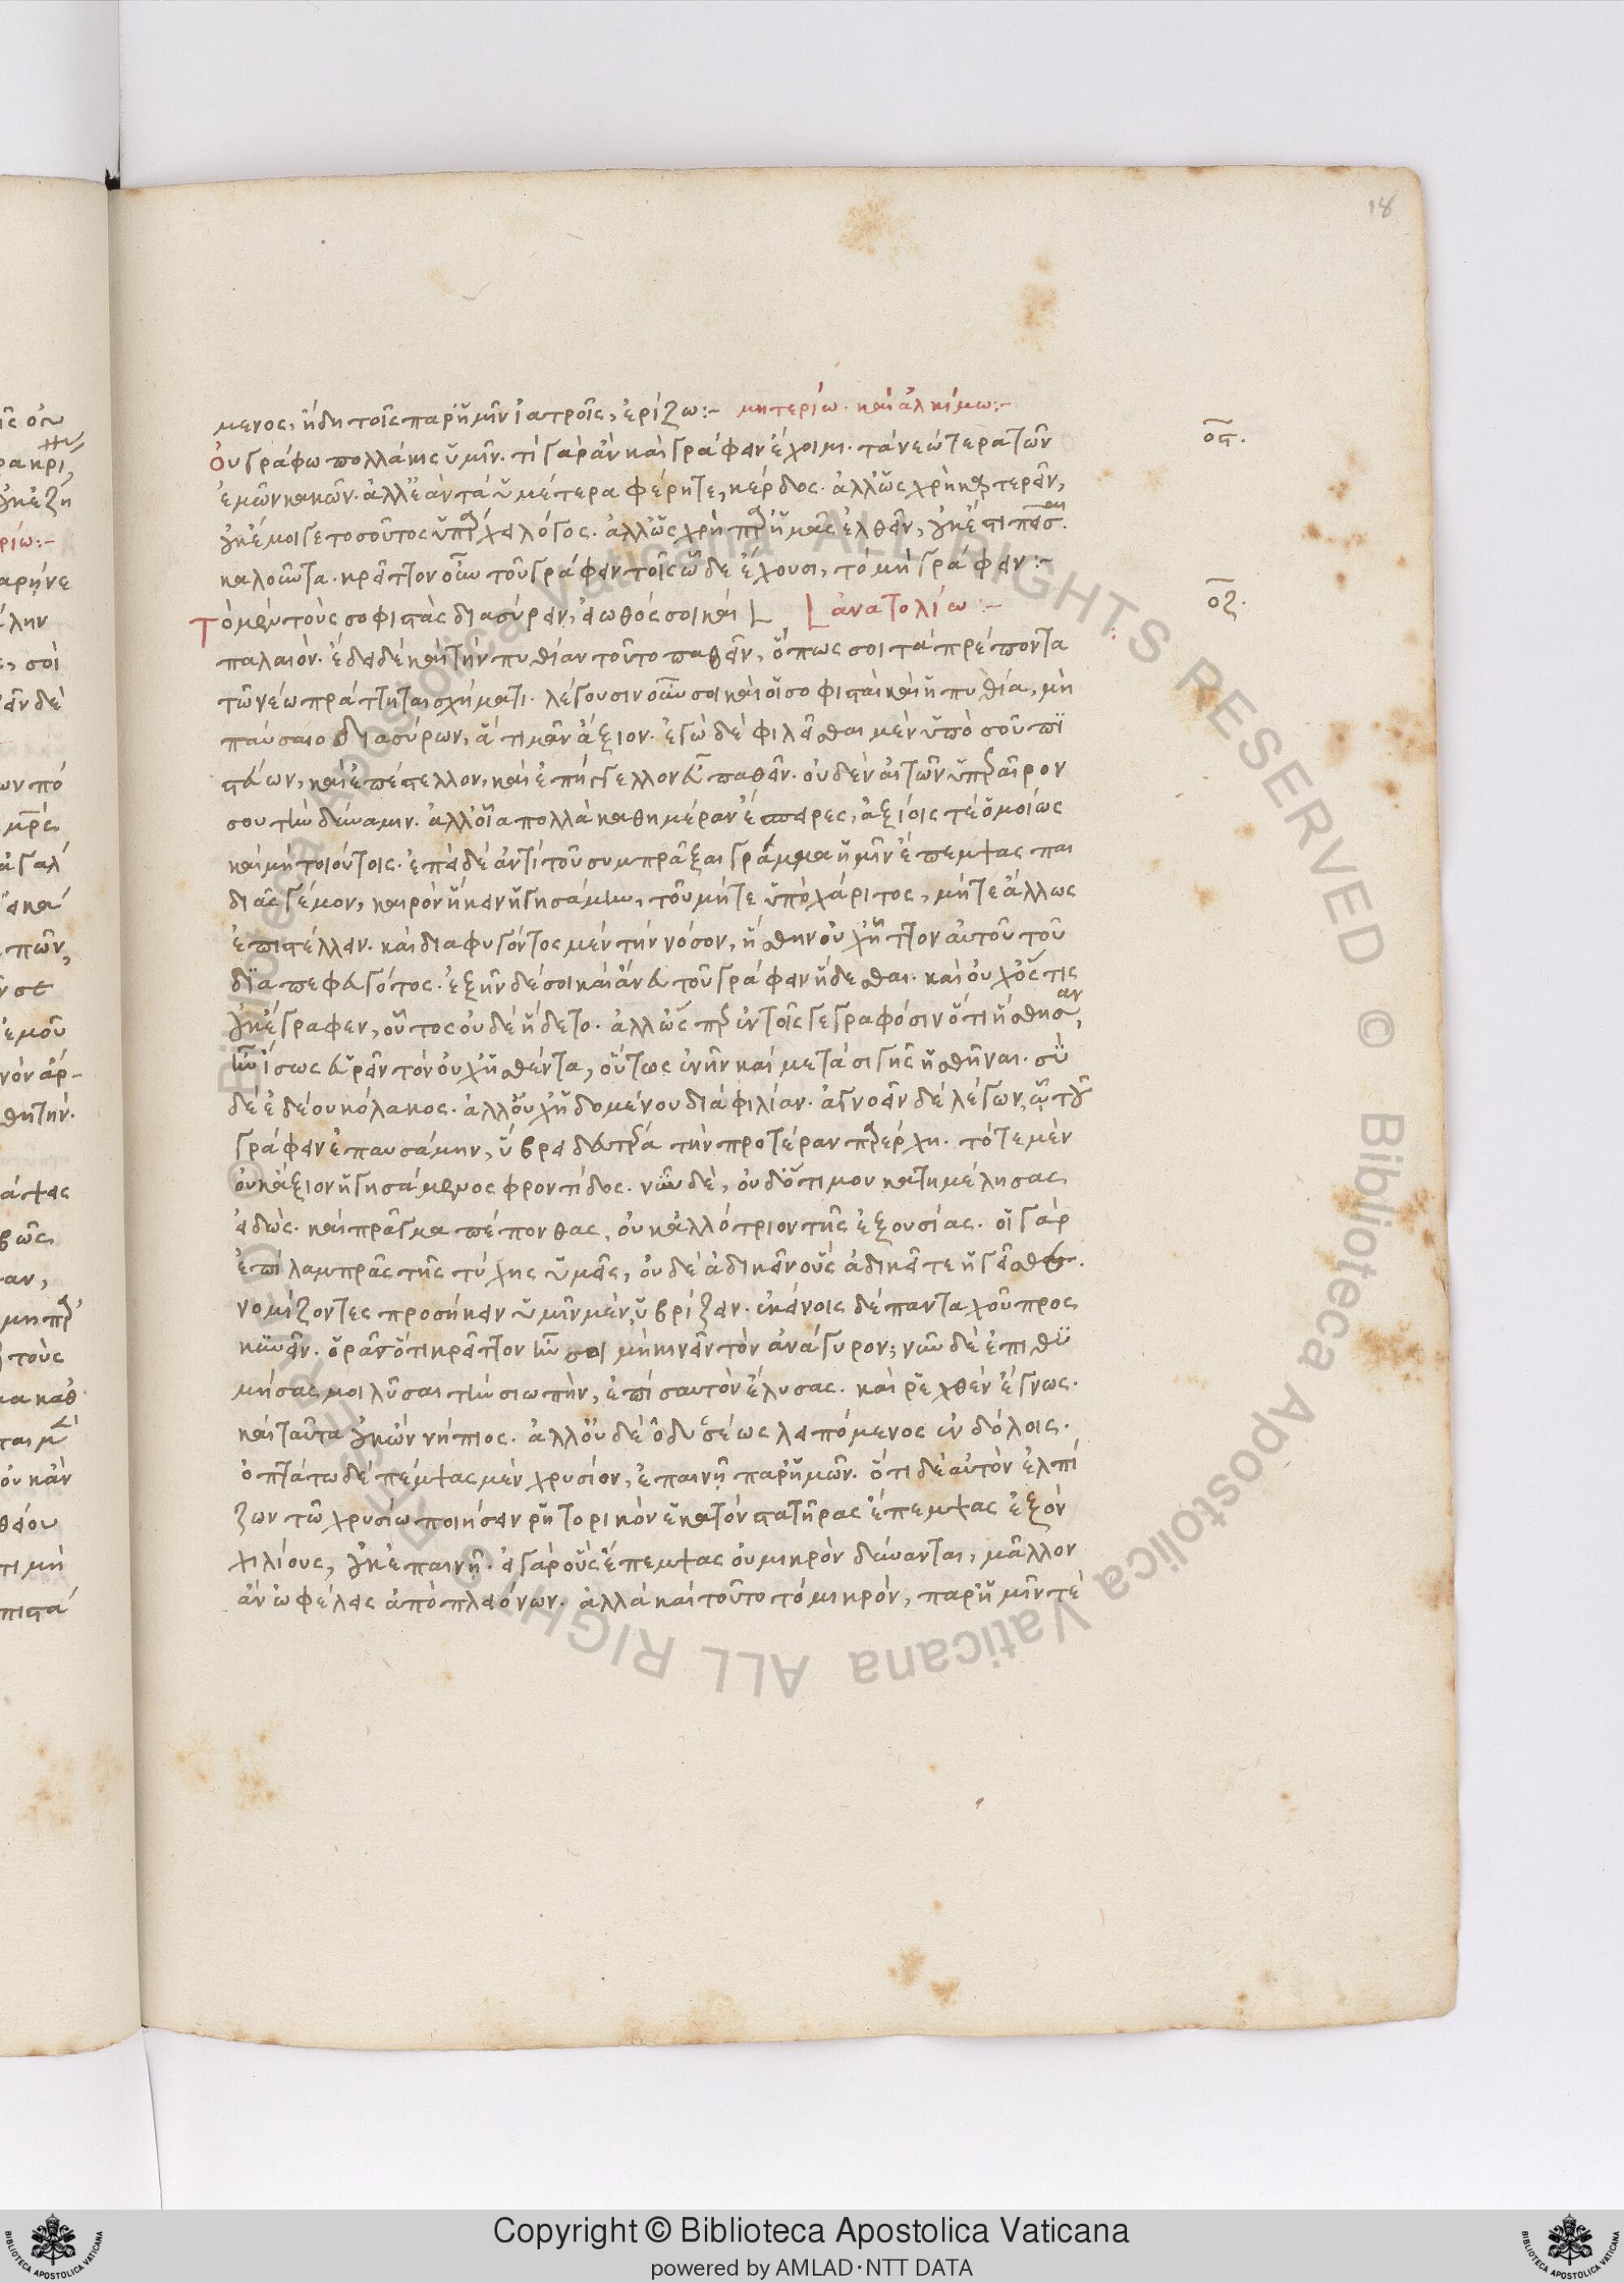 18
μενος, ἤδη τοῖς παρ' ἡμῖν ἰατροῖς, ἐρίζω:- μητερίω. καὶ ἀλκίμω:-
Οὐ γράφω πολλάκις ὑμῖν. τί γὰρ ἂν καὶ γράφειν ἔχοιμι. τὰ νεώτερα τῶν
οϛ.
ἐμῶν κακῶν. ἀλλ' ἐὰν τὰ ὑμέτερα φέρητε, κέρδος. ἀλλ' ὡς χρὴ καρτερεῖν,
οὐκ ἔμοιγε τοσοῦτος ὑπάρχει λόγος. ἀλλ' ὡς χρὴ παρ' ἡμᾶς ἐλθεῖν, οὐκ ἔστι
καλοῦντα. κρεῖττον οὖν τοῦ γράφειν τοῖς ὧδε ἔχουσι, τὸ μὴ γράφειν:-
Τὸ μὲν τοὺς σοφιστὰς διασύρειν, εἰωθός σοι καὶ ἀνατολίω:-
οζ.
παλαιόν. ἔδει δὲ καὶ τὴν πυθίαν τοῦτο παθεῖν, ὅπως σοι τὰ πρέποντα
τῶ νέω πράττηται σχήματι. λέγουσιν οὖν σοι καὶ οἱ σοφισταὶ καὶ ἡ πυθία, μὴ
παύσαιο διασύρων, ἃ τιμᾶν ἄξιον. ἐγὼ δὲ φιλεῖσθαι μὲν ὑπὸ σοῦ πι
στεύων, καὶ ἐπέστελλον, καὶ ἐπήγγελλον εὖ παθεῖν. οὐδὲν αἰτῶν ὑπεραῖρον
σου τὴν δύναμιν. ἀλλ' οἷα πολλὰ καθημέραν ἔσπειρες, ἀξίοις τὲ ὁμοίως
καὶ μὴ τοιούτοις. ἐπεὶ δὲ ἀντὶ τοῦ συμπρᾶξαι γράμμα ἡμῖν ἔπεμψας παι
διᾶς γέμον, καιρὸν ἥκειν ἡγησάμην, τοῦ μήτε ὑπὸ χάριτος, μήτε ἄλλως
ἐπιστέλλειν. καὶ διαφυγόντος μὲν τὴν νόσον, ἥσθην οὐχ ἧττον αὐτοῦ τοῦ
διαπεφευγότος. ἐξῆν δέ σοι καὶ ἄνευ τοῦ γράφειν ἥδεσθαι. καὶ οὐχ ὅστις
οὐκ ἔγραφεν, οὗτος οὐδὲ ἥδετο. ἀλλ' ὥσπερ ἐν τοῖς γεγραφόσιν ὅτι ἥσθησαν,
ἦν ἴσως εὑρεῖν τὸν οὐχ ἡσθέντα, οὕτως ἐνῆν καὶ μετὰ σιγῆς ἡσθῆναι. σὺ
δὲ ἐδέου κόλακος. ἀλλ' οὐχ ἡδομένου διὰ φιλίαν. ἀγνοεῖν δὲ λέγων, ὅτου
γράφειν ἐπαυσάμην, ὕβρει δευτέρα τὴν προτέραν παρέρχη. τότε μὲν
οὐκ ἄξιον ἡγησάμενος φροντίδος. νῦν δὲ, οὐδ' ὅτι μου κατημέλησας
εἰδώς. καὶ πρᾶγμα πέπονθας, οὐκ ἀλλότριον τῆς ἐξουσίας. οἱ γὰρ
ἐπὶ λαμπρᾶς τῆς τύχης ὑμεῖς, οὐδὲ ἀδικεῖν οὓς ἀδικεῖτε ἡγεῖσθε.
νομίζοντες προσήκειν ὑμῖν μὲν ὑβρίζειν. ἐκείνοις δὲ πανταχοῦ προς
κυνεῖν. ὁρᾷς ὅτι κρεῖττον ἦν σοι μὴ κινεῖν τὸν ἀνάγυρον; νῦν δὲ ἐπιθυ
μήσας μοι λῦσαι τὴν σιωπὴν, ἐπὶ σαυτὸν ἔλυσας. καὶ ῥεχθὲν ἔγνως.
καὶ ταῦτα οὐκ ὢν νήπιος. ἀλλ' οὐδὲ ὀδυσσέως λειπόμενος ἐν δόλοις.
ὀπτάτω δὲ πέμψας μὲν χρυσίον, ἐπαινῇ παρ' ἡμῶν. ὅτι δὲ αὐτὸν ἐλπί
ζων τῶ χρυσίω ποιήσειν ῥητορικὸν ἑκατὸν στατῆρας ἔπεμψας ἐξὸν
χιλίους, οὐκ ἐπαινῇ. εἰ γὰρ οὓς ἔπεμψας οὐ μικρὸν δύνανται, μᾶλλον
ἂν ὠφέλεις ἀπὸ πλειόνων. ἀλλὰ καὶ τοῦτο τὸ μικρὸν, παρ' ἡμῖν τὲ
Biblioteca Apostolica Vaticana ALL RIGHTS RESERVED © Biblioteca Apostolica Vaticana ALL RIGHTS RESERVED ©
Copyright © Biblioteca Apostolica Vaticana
powered by AMLAD·NTT DATA
BIBLIOTECA APOSTOLICA VATICANA
BIBLIOTECA APOSTOLICA VATICANA